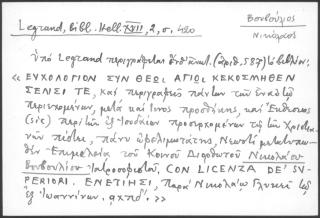 Legrand, Bibl. Hell. XVII, 2, σ. 420
Βουβούλιος
Νικόλαος
ὑπὸ Legrand περιγράφεται (ἀριθ. 587) τὸ βιβλίον:
« ΕΥΧΟΛΟΓΙΟΝ ΣΥΝ ΘΕΩΙ ΑΓΙΩΙ ΚΕΚΟΣΜΗΘΕΝ
ΣΕΝΣΙ ΤΕ, καὶ περιγραφεῖς πάντων τῶν ἐν αὐτῷ
περιεχομένων, μετὰ καί τινος προσθήκης, καὶ Ἐκθέσεως
(sic) περὶ τῶν ἐξ Ἰουδαίων προσερχομένων τῇ τῶν Χριστια-
νῶν πίστει, πάνυ ὠφελιμωτάτης, Νεωστὶ μετατυπω-
θὲν Ἐπιμελείᾳ τοῦ Κοινοῦ Διορθωτοῦ Νικολάου
Βουβουλίου Ἰατροσοφιστοῦ, CON LICENZA DE' SU-
PERIORI. ΕΝΕΤΙΗΣΙ, Παρὰ Νικολάῳ Γλυκεῖ τῷ
ἐξ Ἰωαννίνων. αχπδʹ. »